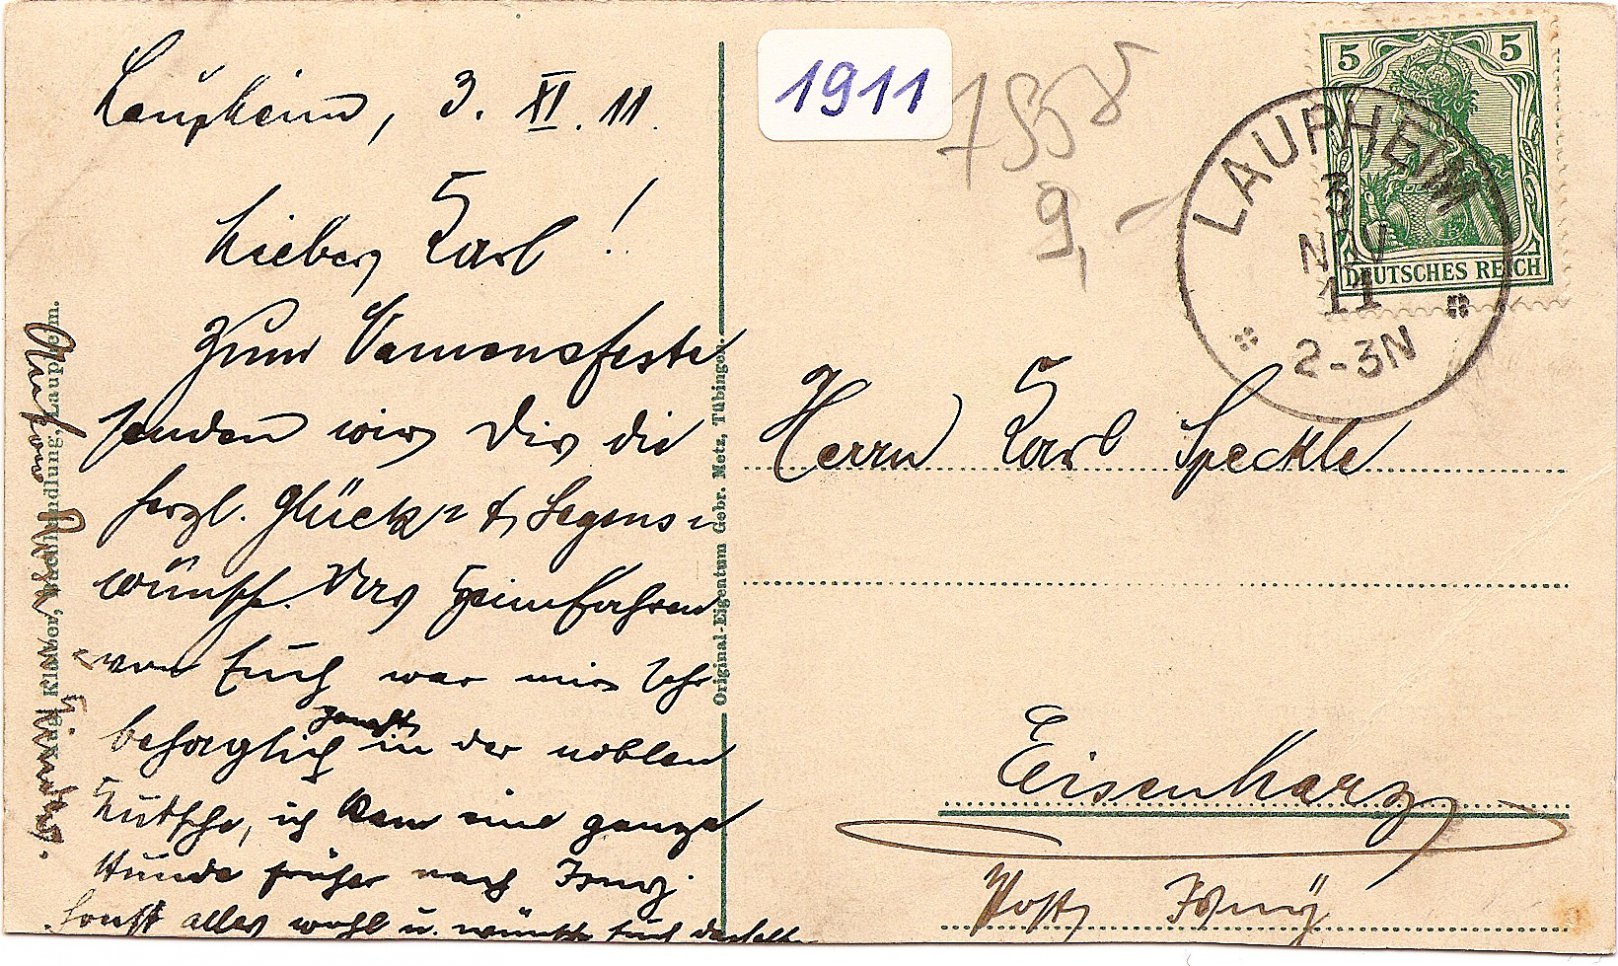 Laupheim, 3. XI. 11.
Lieber Karl!
Zum Namensfeste
senden wir Dir die
herzl. Glück- & Segens-
wünsche. Das Heimfahren
von Euch war mir sehr
behaglich in der noblen
Kutsche, ich kam eine ganze
Stunde früher nach Isny.
Sonst alles wohl u. wünscht Euch dasselbe
Kinder.
Klaiber, Buchhandlung, Laupheim.
Original-Eigentum Gebr. Metz, Tübingen.
1911
9,-
5 5
DEUTSCHES REICH
LAUPHEIM
3
NOV
11
2-3N
Herrn Karl Speckle
Eisenharz
Post Isny